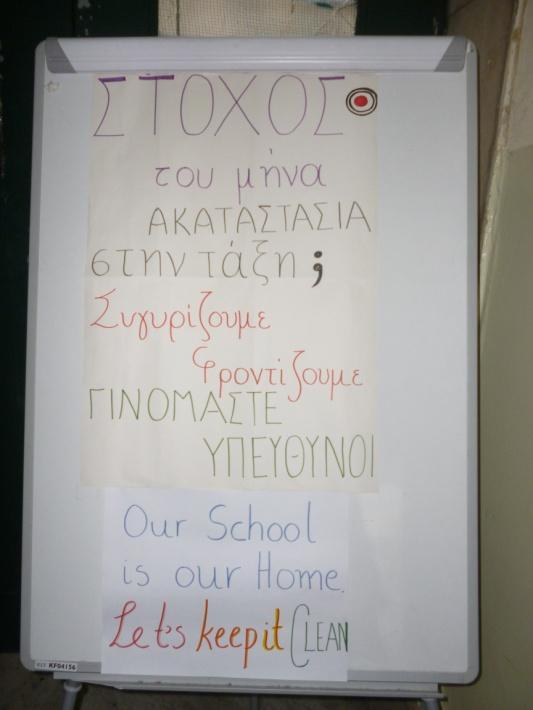 ΣΤΟΧΟΣ
του μήνα
ΑΚΑΤΑΣΤΑΣΙΑ
στην τάξη ;
Συγυρίζουμε
Φροντίζουμε
ΓΙΝΟΜΑΣΤΕ
ΥΠΕΥΘΥΝΟΙ
Our School
is our Home.
Let's keep it CLEAN
KF04156